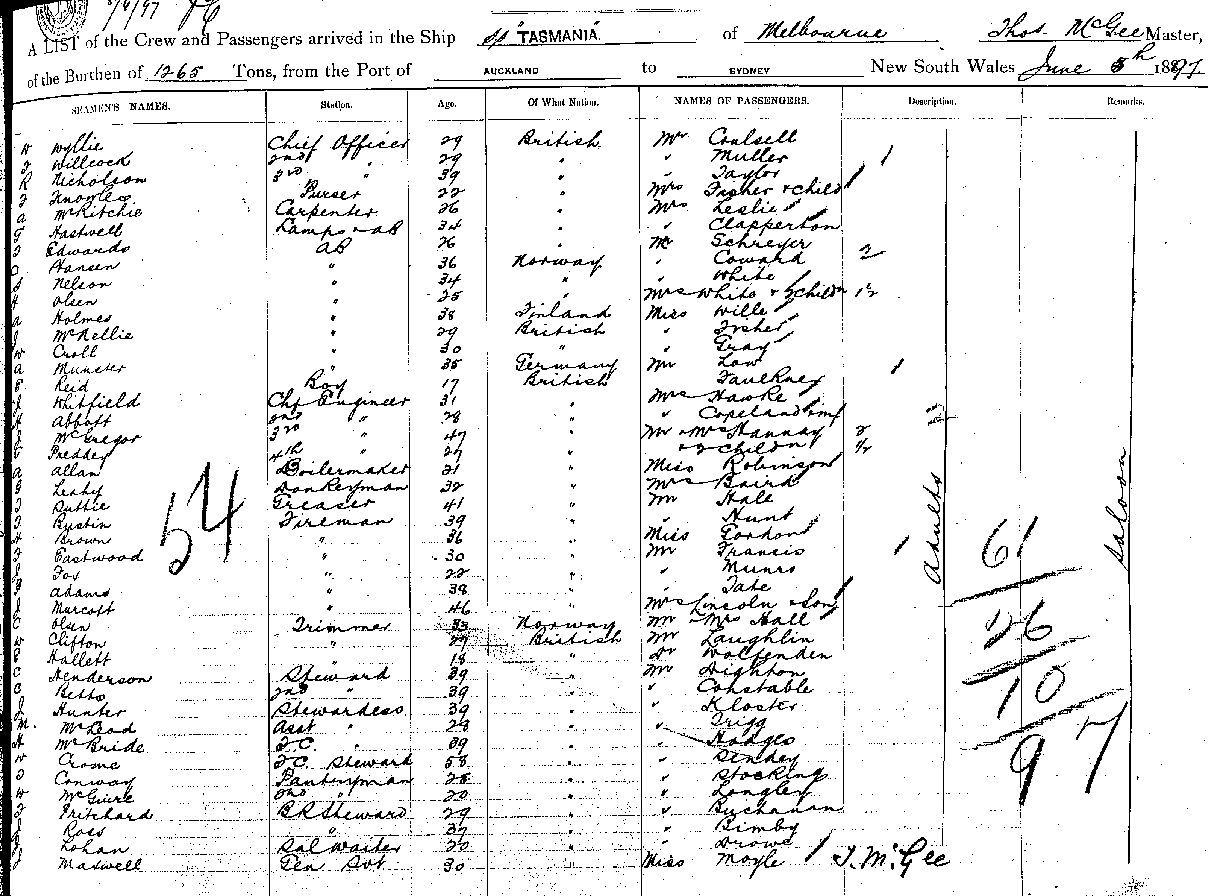 5/6/97
A LIST of the Crew and Passengers arrived in the Ship SS "TASMANIA". of Melbourne Thos. McGee Master,
of the Burthen of 1265 Tons, from the Port of AUCKLAND to SYDNEY New South Wales June 5th 1897
SEAMEN'S NAMES. Station. Age. Of What Nation. NAMES OF PASSENGERS. Description. Remarks.
W Wyllie Chief Officer 29 British Mr Coulsell
J Willcock 2nd " 29 " " Muller 1
R Nicholson 3rd " 39 " " Taylor
Purser 22 " Mrs Fisher & child
A McRitchie Carpenter 26 " Mrs Leslie
Hastwell Lamps & AB 34 " " Clapperton
J Edwards AB 26 " Mr Schreyer
Hansen " 36 Norway " Coward 2
Nelson " 34 " " White
Olsen " 25 " Mrs White & 3 childn 1½
A Holmes " 38 Finland Miss Wille
J McKellie " 29 British " Fisher
W Croll " 30 " " Gray
A Munster " 35 Germany Mr Low 1
Reid Boy 17 British " Faulkner
J Whitfield Chf Engineer 31 " Mrs Hawke
A Abbott 2nd " 28 " " Copeland & inf
J McGregor 3rd " 47 " Mr & Mrs Hannay 2
Preddey 4th " 27 " & 2 childn ½
A Allan Boilermaker 21 " Miss Robinson
Leahy Donkeyman 32 " Mrs Baird
J Duthie Greaser 41 " Mr Hale
J Bustin Fireman 39 " " Hunt
A Brown " 36 " Miss Gordon
J Eastwood " 30 " Mr Francis 1
J Fox " 22 " " Munro
Adams " 38 " " Tate
J Murcott " 46 " Mrs Lincoln & son
C Olsen Trimmer 33 Norway Mr & Mrs Hall
Clifton " 29 British Mr Laughlin
Hallett " 18 " Dr Wolfenden
C Henderson Steward 39 " Mr Dighton
C Betts 2nd " 39 " " Constable
J Hunter Stewardess 39 " " Kloster
M. McLeod Asst " 28 " " Trigg
A McBride F.C. " 39 " " Hodges
W Crome F.C. Steward 58 " " Bendey
Conway Pantryman 25 " " Stocking
W McGuire 2nd " 20 " " Longley
J Pritchard BR Steward 29 " " Buchanan
J Ross " 37 " " Bimby
J Lohan Sal Waiter 20 " " Drowe
J Maxwell Gen Svt 30 " Miss Moyle T. McGee
54
Adults
61
26
10
97
Saloon